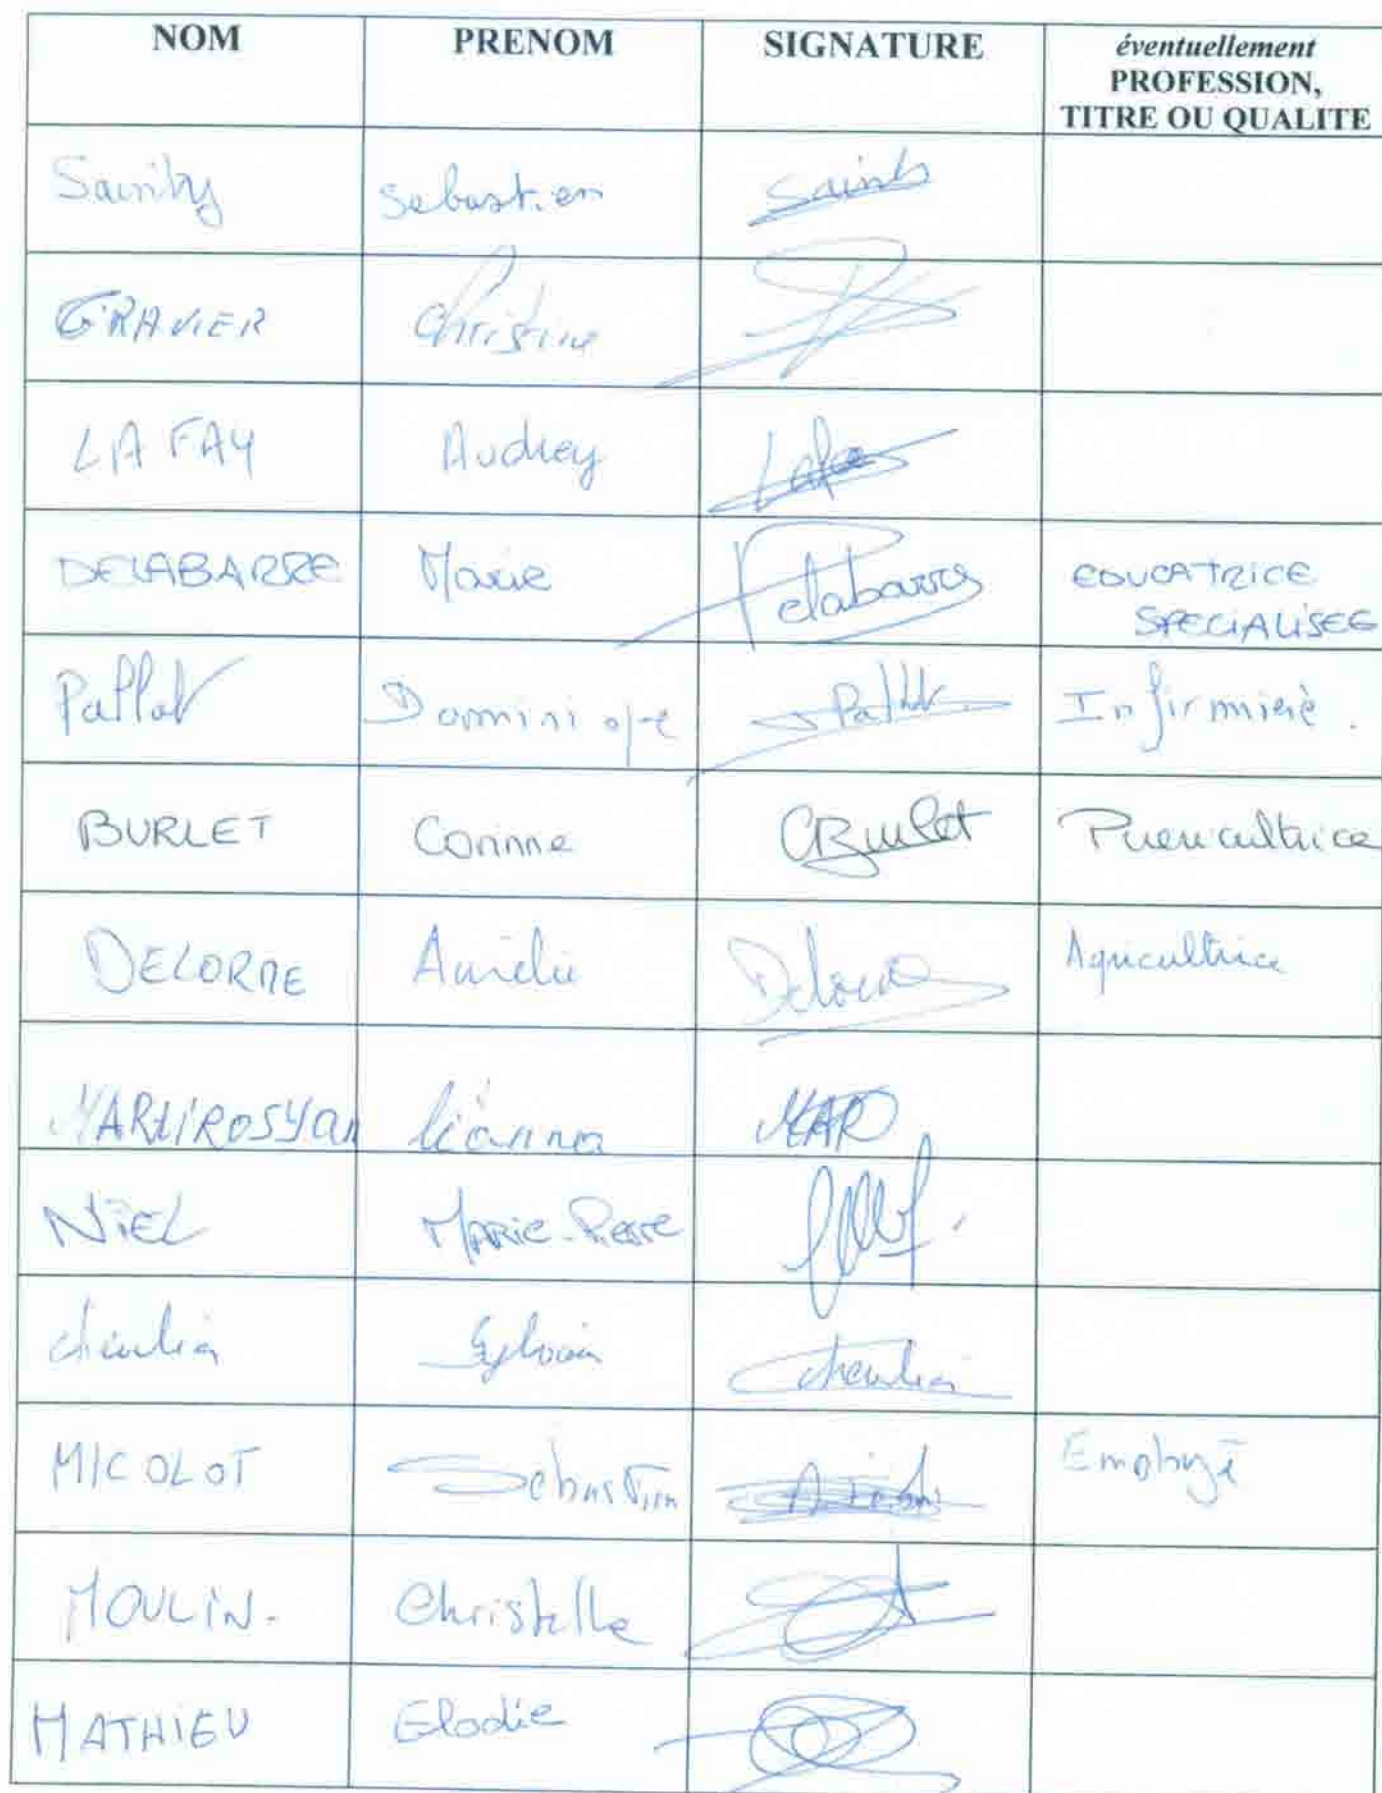 NOM PRENOM SIGNATURE éventuellement
PROFESSION,
TITRE OU QUALITE
Sainty Sebastien
GRAVIER Christine
LAFAY Audrey
DELABARRE Marie Delabarre EDUCATRICE
SPECIALISEE
Pallot Dominique Pallot Infirmière.
BURLET Corinne CBurlet Puericultrice
DELORME Aurélie Delorme Agricultrice
MARTIROSYAN lianna MAR
NIEL MARIE-Pierre
Sylvain
MICOLOT Sebastien Employé
MOULIN. Christelle
MATHIEU Elodie